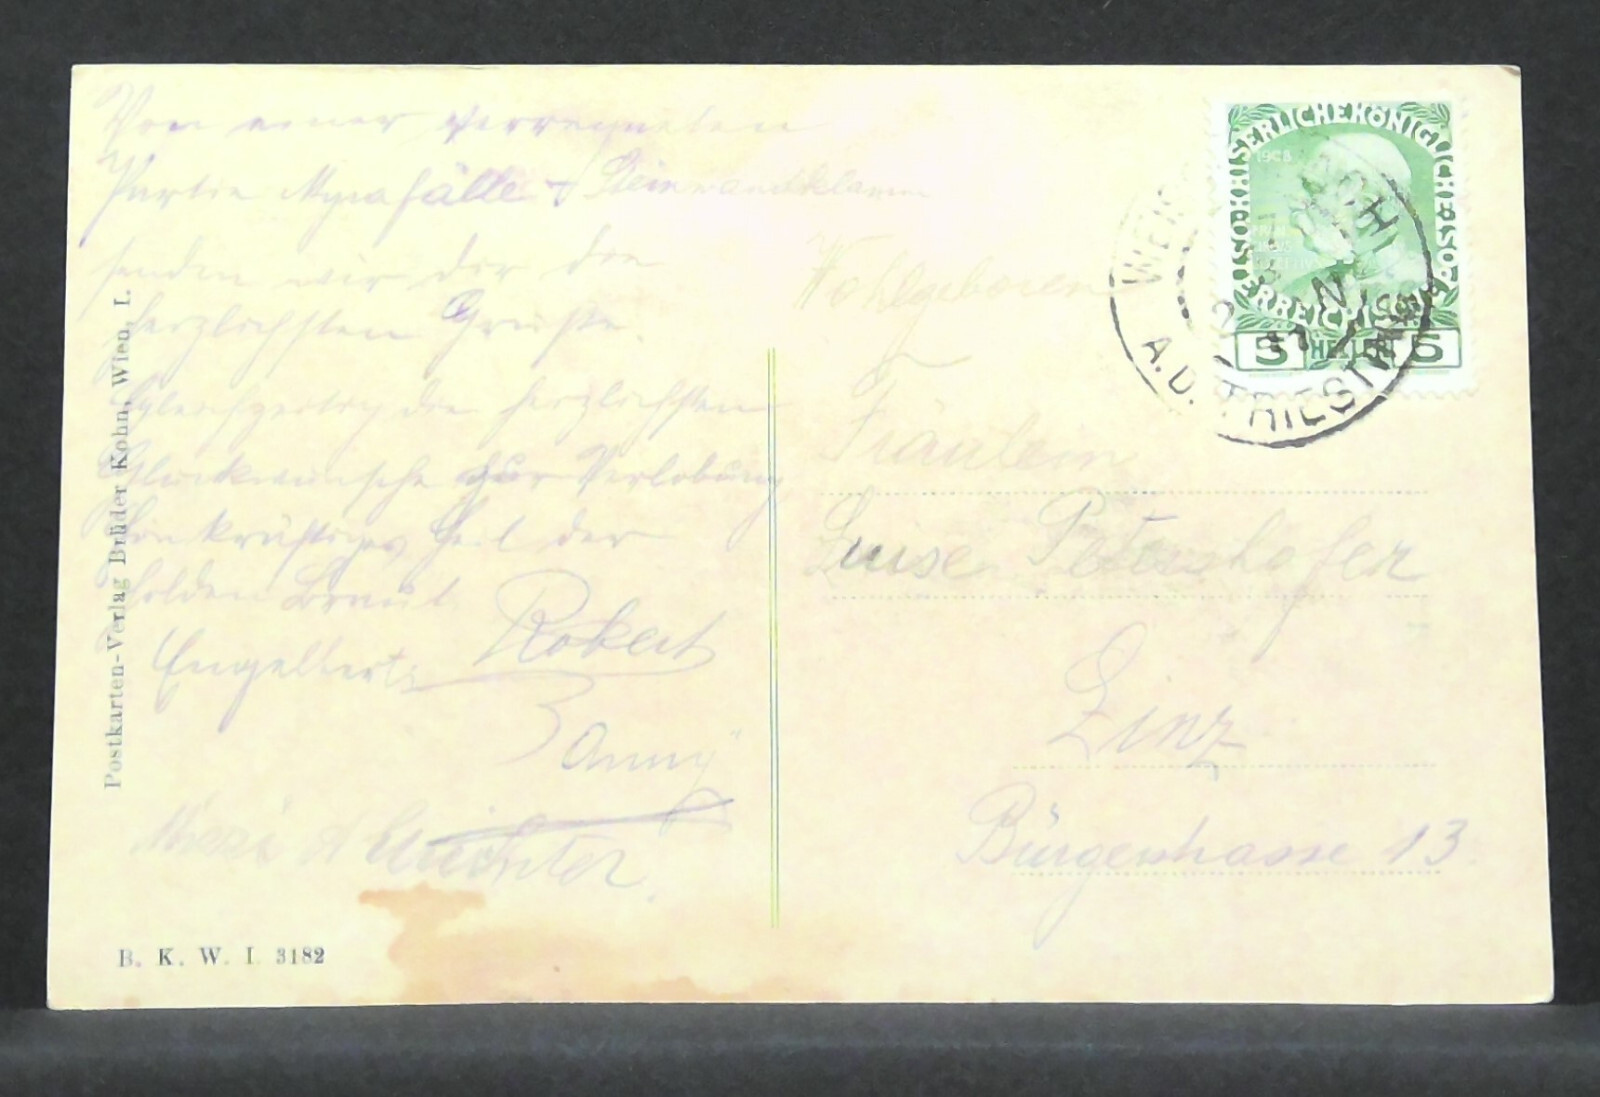 Von einer verregneten
Partie Myrafälle + Steinwandklamm
senden wir dir die
herzlichsten Grüße.
Gleichzeitig die herzlichsten
Glückwünsche zur Verlobung
Ein kräftiges Heil der
holden Braut
Robert
Anny
Postkarten-Verlag Brüder Kohn, Wien, I.
B. K. W. I. 3182
KAISERLICHE KÖNIGLICHE ÖSTERREICHISCHE
1908
5 HELLER 5
A.D. TRIESTING
Wohlgeboren
Fräulein
Luise Petershofer
Linz
Bürgerstrasse 13.